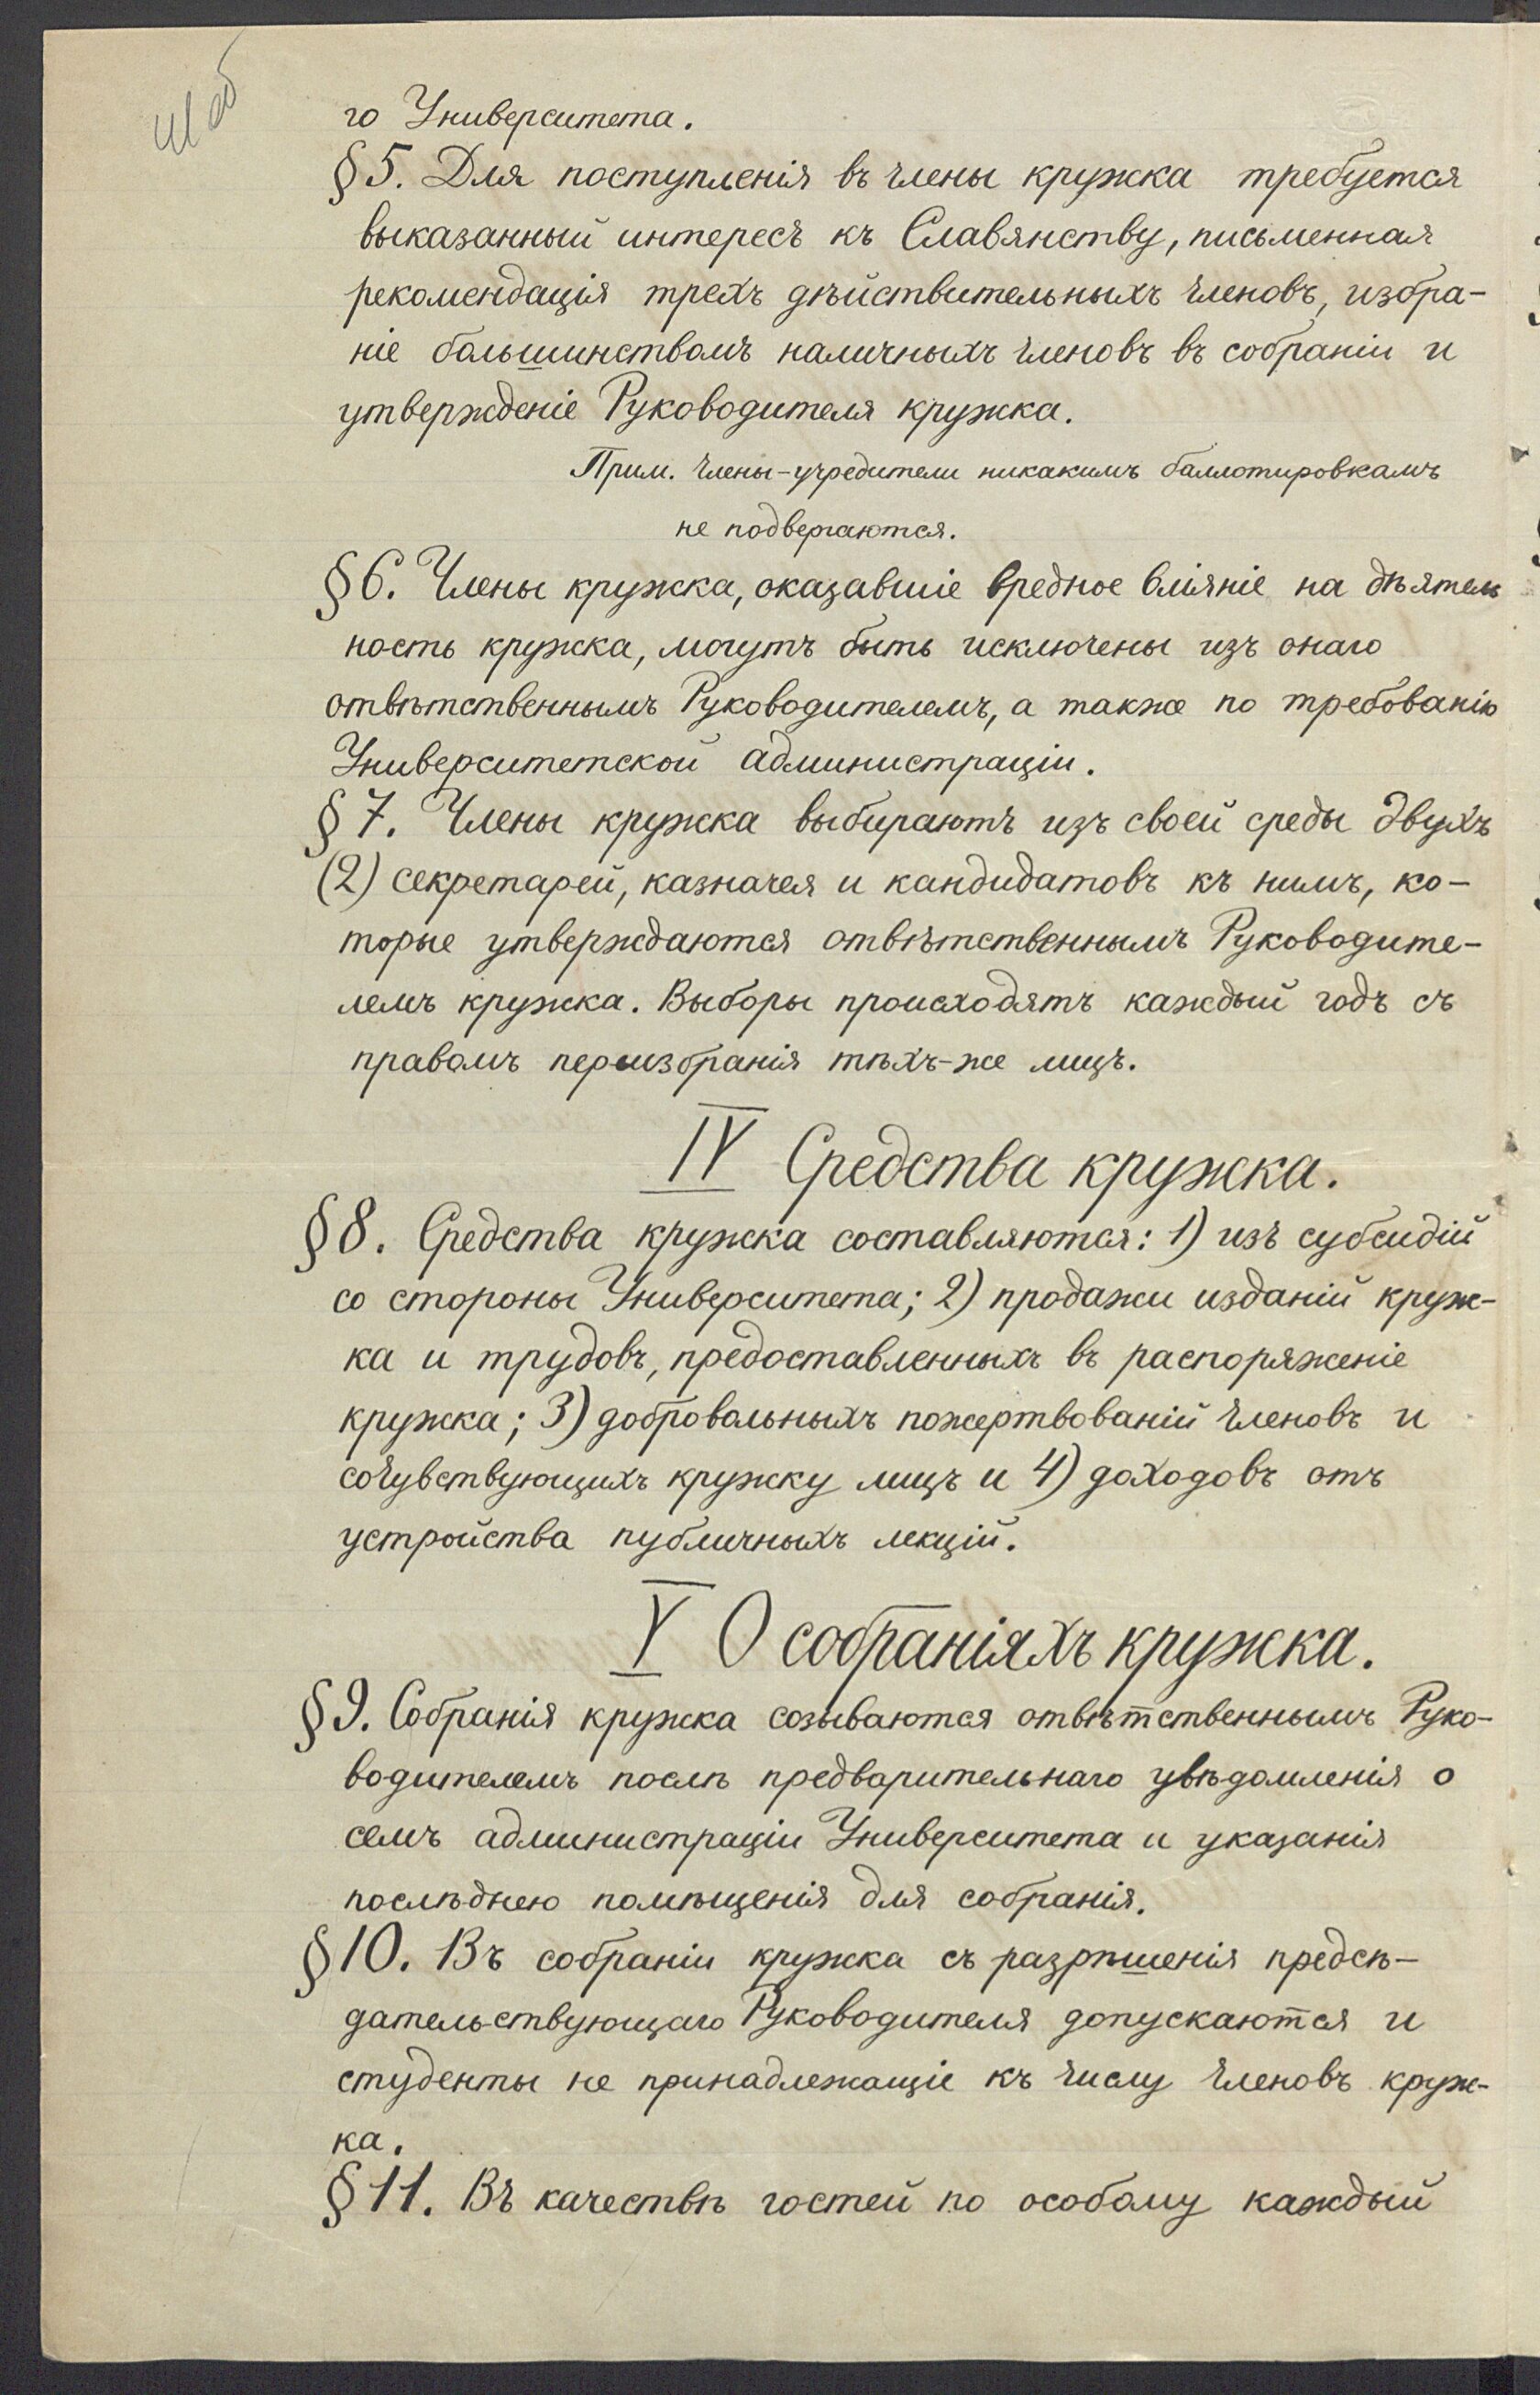 го Университета.
§ 5. Для поступленія въ члены кружка требуется
выказанный интересъ къ Славянству, письменная
рекомендація трехъ дѣйствительныхъ членовъ, избра-
ніе большинствомъ наличныхъ членовъ въ собраніи и
утвержденіе Руководителя кружка.
Прим. Члены-учредители никакимъ баллотировкамъ
не подвергаются.
§ 6. Члены кружка, оказавшіе вредное вліяніе на дѣятель
ность кружка, могутъ быть исключены изъ онаго
отвѣтственнымъ Руководителемъ, а также по требованію
Университетской администраціи.
§ 7. Члены кружка выбираютъ изъ своей среды двухъ
(2) секретарей, казначея и кандидатовъ къ нимъ, ко-
торые утверждаются отвѣтственнымъ Руководите-
лемъ кружка. Выборы происходятъ каждый годъ съ
правомъ переизбранія тѣхъ-же лицъ.
IV Средства кружка.
§ 8. Средства кружка составляются: 1) изъ субсидій
со стороны Университета; 2) продажи изданій круж-
ка и трудовъ, предоставленныхъ въ распоряженіе
кружка; 3) добровольныхъ пожертвованій членовъ и
сочувствующихъ кружку лицъ и 4) доходовъ отъ
устройства публичныхъ лекцій.
V О собраніяхъ кружка.
§ 9. Собранія кружка созываются отвѣтственнымъ Руко-
водителемъ послѣ предварительнаго увѣдомленія о
семъ администраціи Университета и указанія
послѣднею помѣщенія для собранія.
§ 10. Въ собраніи кружка съ разрѣшенія предсѣ-
дательствующаго Руководителя допускаются и
студенты не принадлежащіе къ числу членовъ круж-
ка.
§ 11. Въ качествѣ гостей по особому каждый